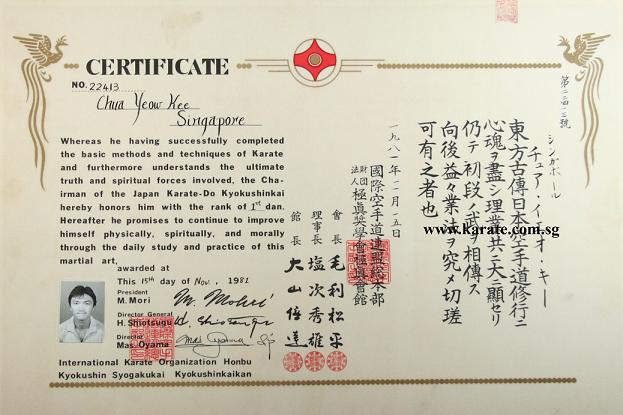 CERTIFICATE
NO. 22413
Chua Yeow Kee
Singapore
Whereas he having successfully completed
the basic methods and techniques of Karate
and furthermore understands the ultimate
truth and spiritual forces involved, the Cha-
irman of the Japan Karate-Do Kyokushinkai
hereby honors him with the rank of 1st dan.
Hereafter he promises to continue to improve
himself physically, spiritually, and morally
through the daily study and practice of this
martial art.
awarded at
This 15th day of Nov, 1981
President
M. Mori
Director General
H. Shiotsugu
Director
Mas. Oyama
International Karate Organization Honbu
Kyokushin Syogakukai Kyokushinkaikan
第二二四一三號
シンガポール
チュア・イォオ・キー
東方古傳日本空手道修行ニ
心魂ヲ盡シ理業共ニ大ニ顯セリ
仍テ初段ノ武ヲ相傳ス
向後益々業法ヲ究メ切瑳
可有之者也
www.karate.com.sg
一九八一年一一月一五日
國際空手道連盟総本部
財団法人極真奨学會極真會館
會長 毛利松平
理事長 塩次秀雄
館長 大山倍達